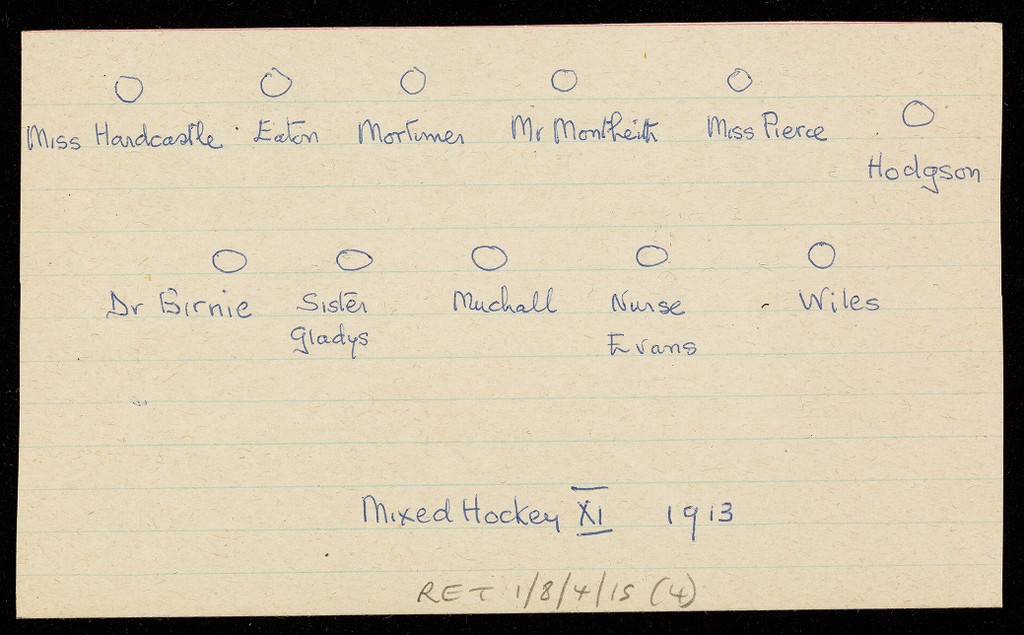 Miss Hardcastle Eaton Mortimer Mr Montheith Miss Pierce
Hodgson
Dr Birnie Sister Muchall Nurse Wiles
Gladys Evans
Mixed Hockey XI 1913
RET 1/8/4/15 (4)